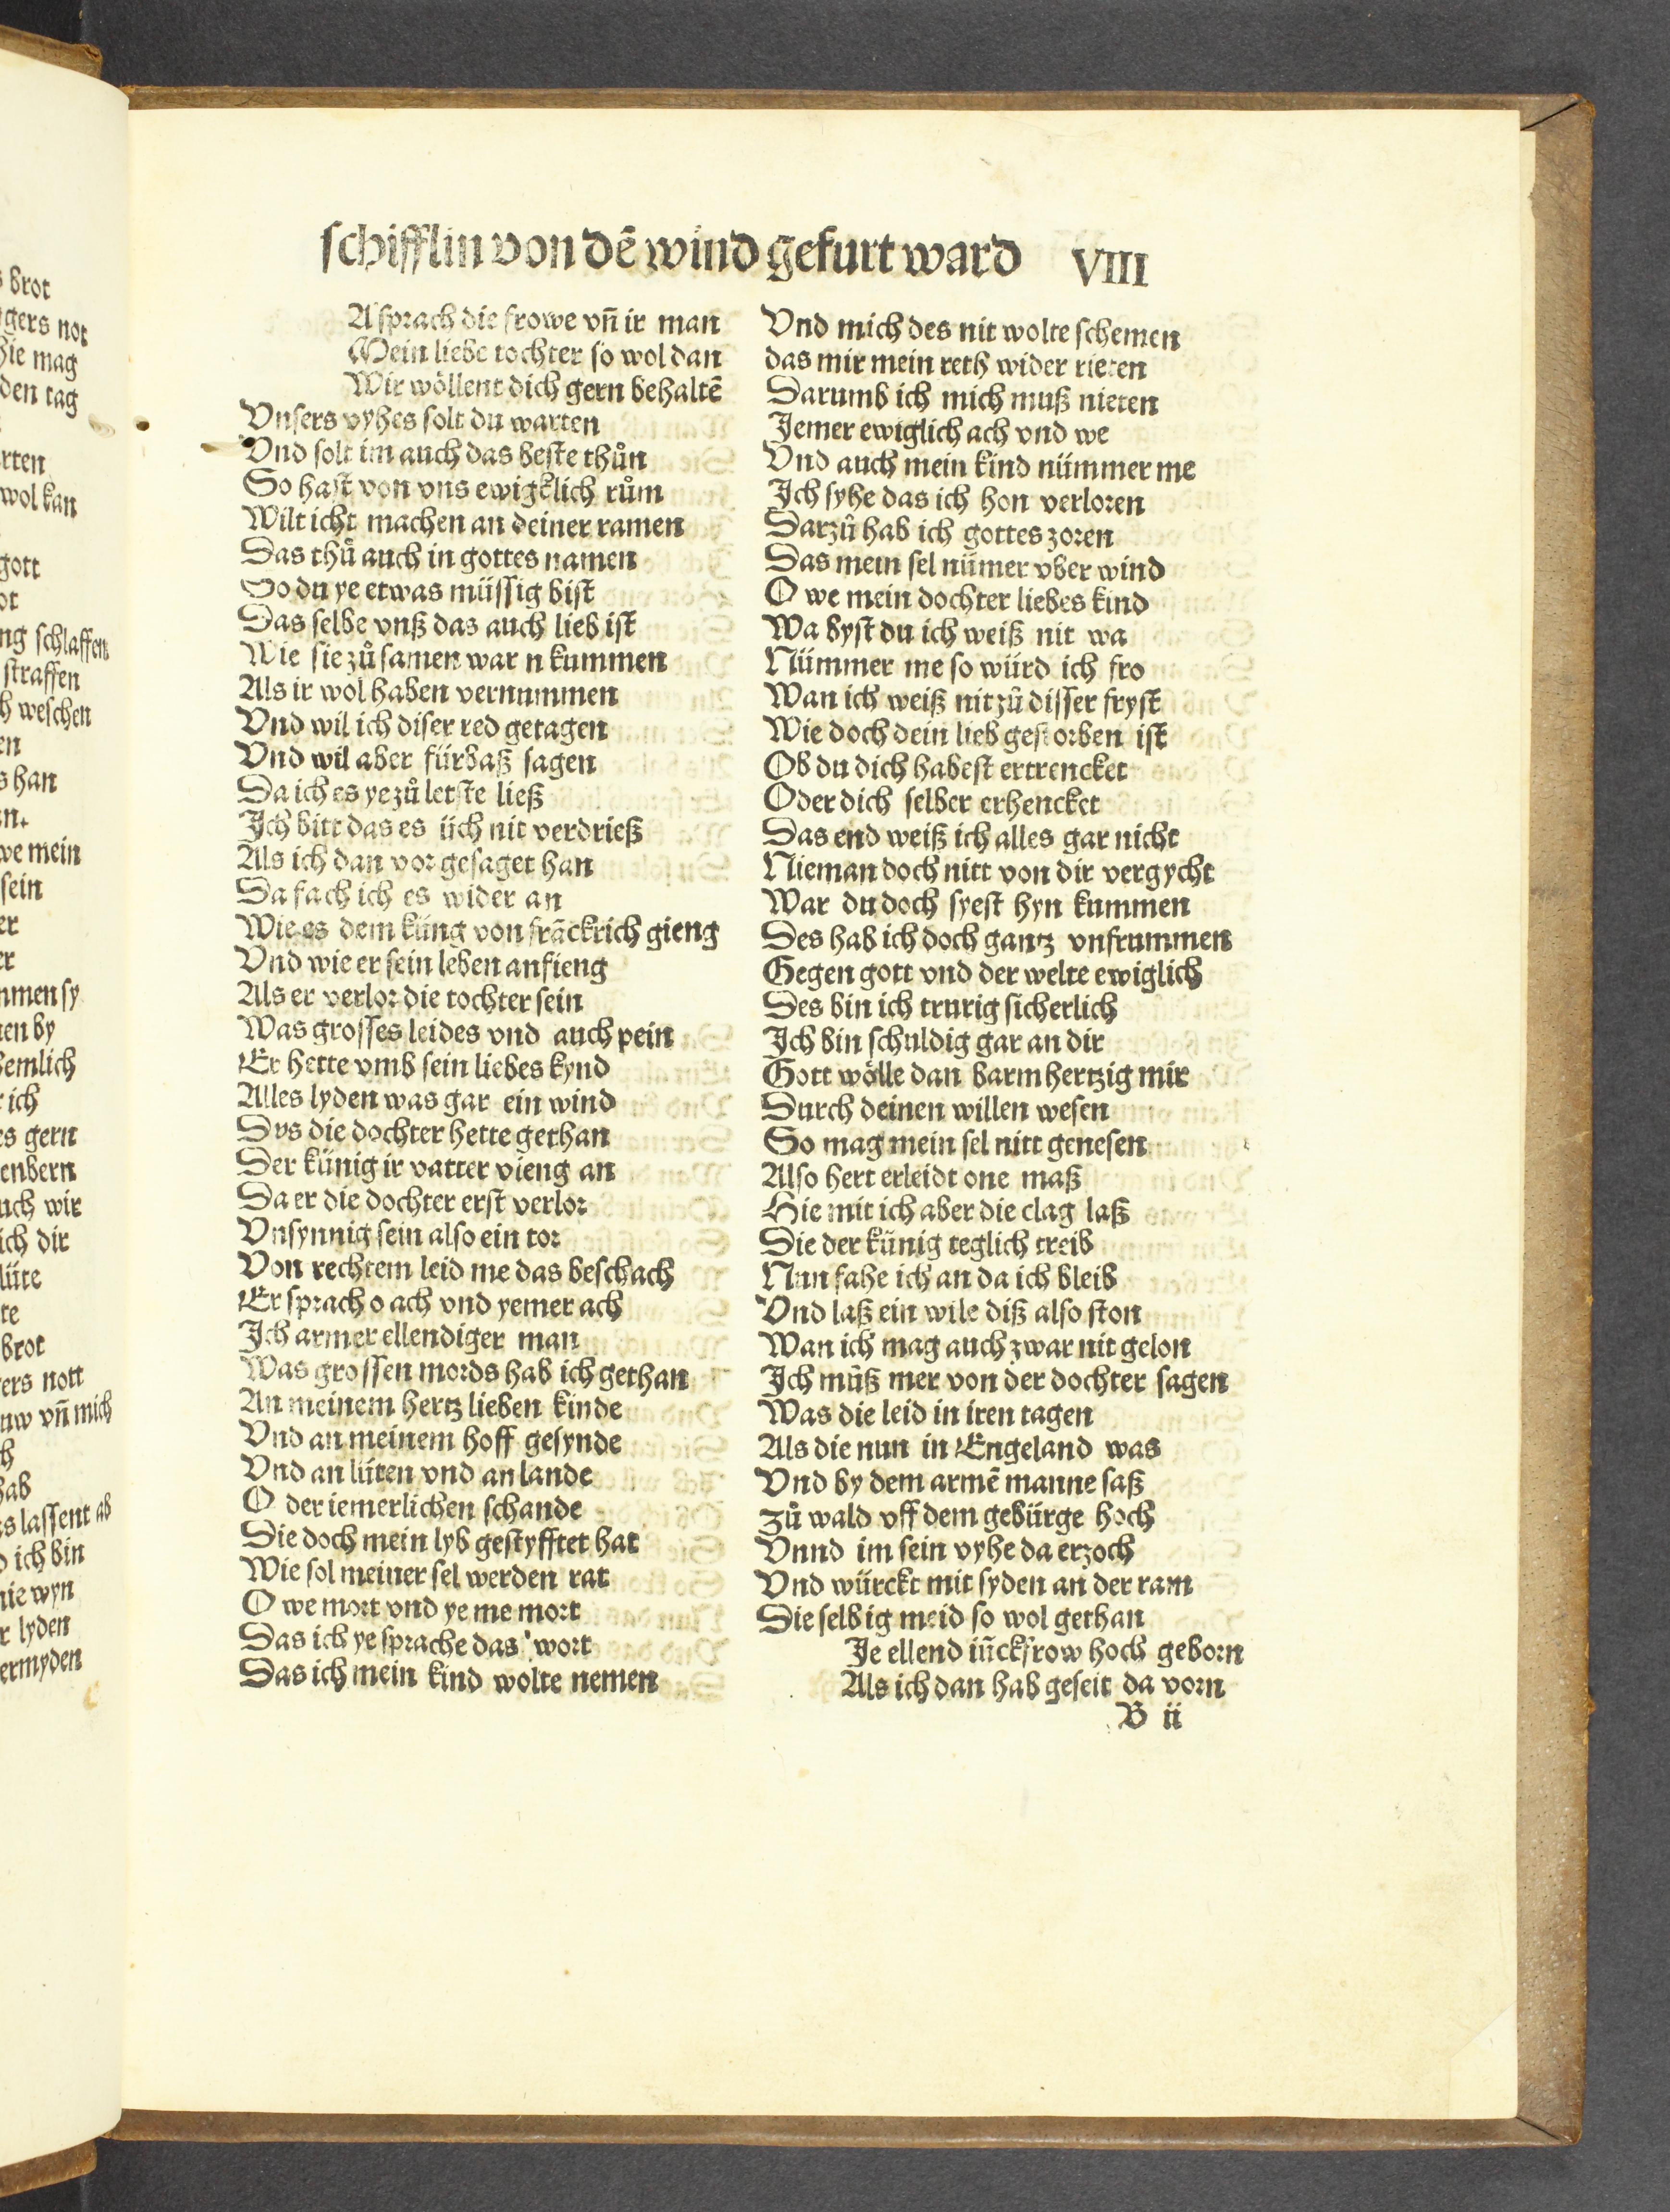 schifflin von dē wind gefurt ward VIII
A sprach die frowe vñ ir man
Mein liebe tochter so wol dan
Wir wöllent dich gern behaltē
Vnsers vyhes solt du warten
Vnd solt im auch das beste thůn
So hast von vns ewigklich rům
Wilt icht machen an deiner ramen
Das thů auch in gottes namen
So du ye etwas müssig bist
Das selbe vnß das auch lieb ist
Wie sie zů samen war n kummen
Als ir wol haben vernummen
Vnd wil ich diser red getagen
Vnd wil aber fürbaß sagen
Da ich es ye zů letste ließ
Ich bitt das es üch nit verdrieß
Als ich dan vor gesaget han
Da fach ich es wider an
Wie es dem küng von frāckrich gieng
Vnd wie er sein leben anfieng
Als er verlor die tochter sein
Was grosses leides vnd auch pein
Er hette vmb sein liebes kynd
Alles lyden was gar ein wind
Dvs die dochter hette gethan
Der künig ir vatter vieng an
Da er die dochter erst verlor
Vnsynnig sein also ein tor
Von rechtem leid me das beschach
Er sprach o ach vnd yemer ach
Ich armer ellendiger man
Was grossen mords hab ich gethan
An meinem hertz lieben kinde
Vnd an meinem hoff gesynde
Vnd an lüten vnd an lande
O der iemerlichen schande
Die doch mein lyb gestyfftet hat
Wie sol meiner sel werden rat
O we mort vnd ye me mort
Das ich ye sprache das wort
Das ich mein kind wolte nemen
Vnd mich des nit wolte schemen
das mir mein reth wider rieten
Darumb ich mich muß nieten
Jemer ewiglich ach vnd we
Vnd auch mein kind nümmer me
Ich syhe das ich hon verloren
Darzů hab ich gottes zoren
Das mein sel nümer vber wind
O we mein dochter liebes kind
Wa byst du ich weiß nit wa
Nümmer me so würd ich fro
Wan ich weiß nit zů disser fryst
Wie doch dein lieb gestorben ist
Ob du dich habest ertrencket
Oder dich selber erhencket
Das end weiß ich alles gar nicht
Nieman doch nitt von dir vergycht
War du doch syest hyn kummen
Des hab ich doch gantz vnfrummen
Gegen gott vnd der welte ewiglich
Des bin ich trurig sicherlich
Ich bin schuldig gar an dir
Gott wölle dan barmhertzig mir
Durch deinen willen wesen
So mag mein sel nitt genesen
Also hert erleidt one maß
Hie mit ich aber die clag laß
Die der künig teglich treib
Nun fahe ich an da ich bleib
Vnd laß ein wile diß also ston
Wan ich mag auch zwar nit gelon
Ich můß mer von der dochter sagen
Was die leid in iren tagen
Als die nun in Engeland was
Vnd by dem armē manne saß
zů wald vff dem gebürge hoch
Vnnd im sein vyhe da erzoch
Vnd würckt mit syden an der ram
Die selbig meid so wol gethan
Je ellend iũckfrow hoch geborn
Als ich dan hab geseit da vorn
B ii